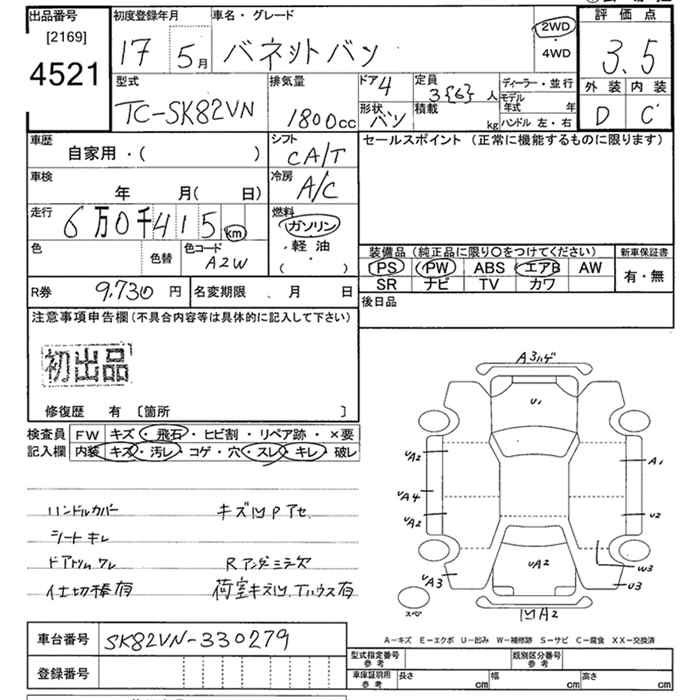 出品番号 [2169] 4521
初度登録年月 17 5月
車名・グレード バネットバン
2WD・4WD
評価点 3.5
外装 D 内装 C
型式 TC-SK82VN
排気量 1800cc
ドア 4 形状 バン
定員 3{6}人 積載 kg
ディーラー・並行
モデル年式 年
ハンドル 左・右
車歴 自家用・( )
シフト CA/T
セールスポイント (正常に機能するものに限ります)
車検 年 月( 日)
冷房 A/C
走行 6万0千415 km
燃料 ガソリン・軽油 ( ・ )
色 色替 色コード A2W
装備品 (純正品に限り○をつけてください)
PS PW ABS エアB AW
SR ナビ TV カワ
新車保証書 有・無
R券 9,730円
名変期限 月 日
後日品
注意事項申告欄 (不具合内容等は具体的に記入して下さい)
初出品
修復歴 有 [箇所 ]
検査員記入欄
FW キズ・飛石・ヒビ割・リペア跡・×要
内装 キズ・汚レ・コゲ・穴・スレ・キレ・破レ
ハンドルカバー
シートキレ
R アンダミラ欠
仕切棒有
A3ハゲ
U1
UA2
A1
UA4
UA2
U2
UA2
UA3
W3
U3
スペア
凹A2
A-キズ E-エクボ U-凹み W-補修跡 S-サビ C-腐食 XX-交換済
車台番号 SK82VN-330279
登録番号
型式指定番号 参考
類別区分番号 参考
車庫証明用 参考 長さ cm 幅 cm 高さ cm